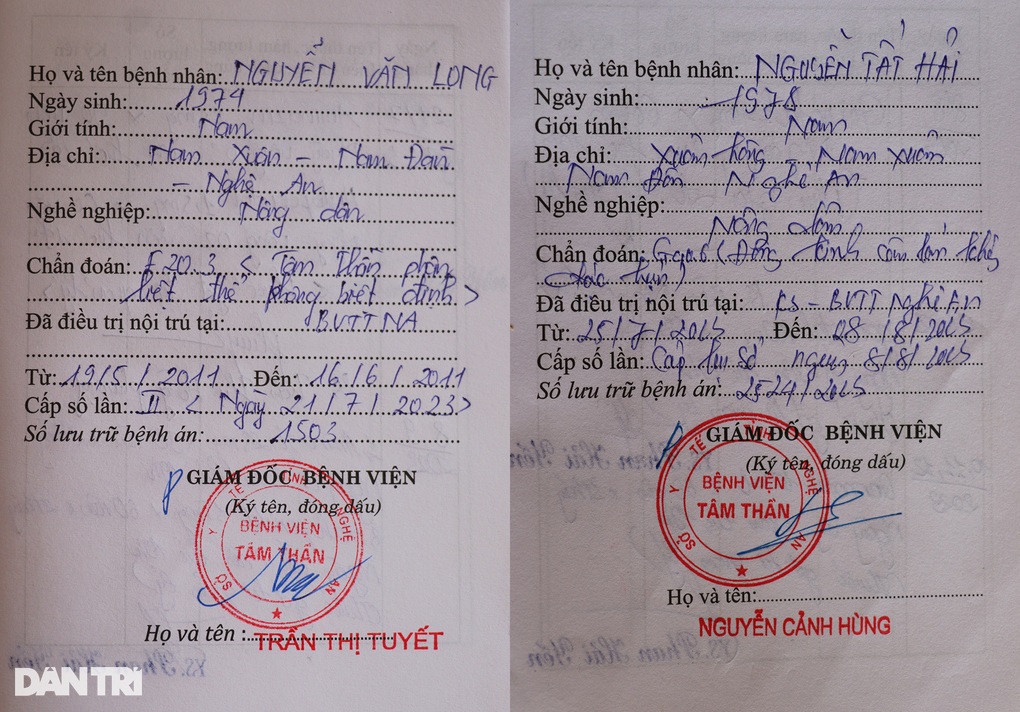 Họ và tên bệnh nhân: NGUYỄN VĂN LONG
Ngày sinh: 1974
Giới tính: Nam
Địa chỉ: Nam Xuân - Nam Đàn
- Nghệ An
Nghề nghiệp: Nông dân
Chẩn đoán: F20.3 < Tâm thần phân
liệt thể không biệt định >
Đã điều trị nội trú tại: BVTTNA
Từ: 19/5/2011 Đến: 16/6/2011
Cấp sổ lần: II < Ngày 21/7/2023>
Số lưu trữ bệnh án: 1503
GIÁM ĐỐC BỆNH VIỆN
(Ký tên, đóng dấu)
SỞ Y TẾ TỈNH NGHỆ AN
BỆNH VIỆN
TÂM THẦN
Họ và tên :
TRẦN THỊ TUYẾT
DÂN TRÍ
Họ và tên bệnh nhân: NGUYỄN TẤT HẢI
Ngày sinh: 1978
Giới tính: Nam
Địa chỉ: Nam Xuân
Nam Đàn Nghệ An
Nghề nghiệp:
Nông dân
Chẩn đoán: (Động kinh
Đã điều trị nội trú tại: BVTT Nghệ An
Từ: 25/7/2023 Đến: 08/8/2023
Cấp sổ lần: ngày 8/8/2023
Số lưu trữ bệnh án: 2524/2023
GIÁM ĐỐC BỆNH VIỆN
(Ký tên, đóng dấu)
SỞ Y TẾ TỈNH NGHỆ AN
BỆNH VIỆN
TÂM THẦN
Họ và tên:
NGUYỄN CẢNH HÙNG